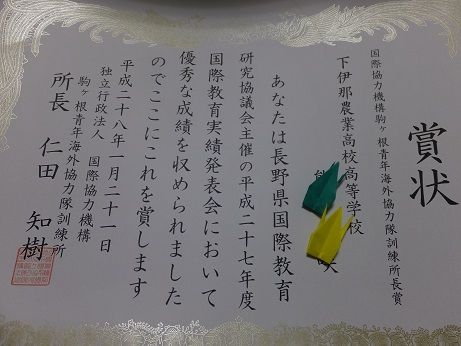 賞状
国際協力機構駒ヶ根青年海外協力隊訓練所長賞
下伊那農業高校高等学校
あなたは長野県国際教育
研究協議会主催の平成二十七年度
国際教育実績発表会において
優秀な成績を収められました
のでここにこれを賞します
平成二十八年一月二十一日
独立行政法人 国際協力機構
駒ヶ根青年海外協力隊訓練所
所長 仁田 知樹